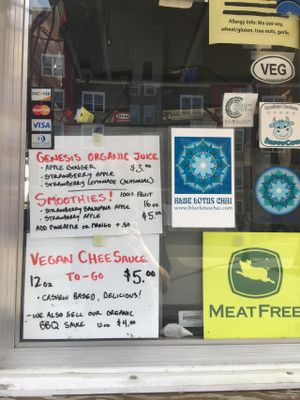 Allergy Info: We use soy,
wheat/gluten, tree nuts, garlic.
VEG
DISCOVER
VISA
GENESIS ORGANIC JUICE
• APPLE GINGER $3.00
• STRAWBERRY APPLE
• STRAWBERRY LEMONADE (SEASONAL)
SMOOTHIES! 100% FRUIT
• STRAWBERRY BANANA APPLE 16 oz
• STRAWBERRY APPLE $5.00
ADD PINEAPPLE OR MANGO +.50
BLUE LOTUS CHAI
www.bluelotuschai.com
VEGAN CHEESAUCE
12oz TO-GO $5.00
• CASHEW BASED, DELICIOUS!
-WE ALSO SELL OUR ORGANIC
BBQ SAUCE 12oz $4.00
MEATFREE